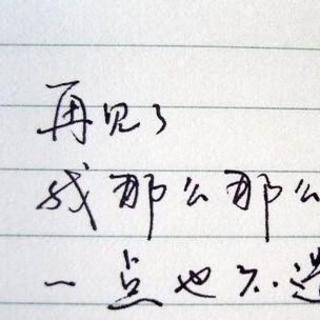 再见了
我那么那么
一点也不